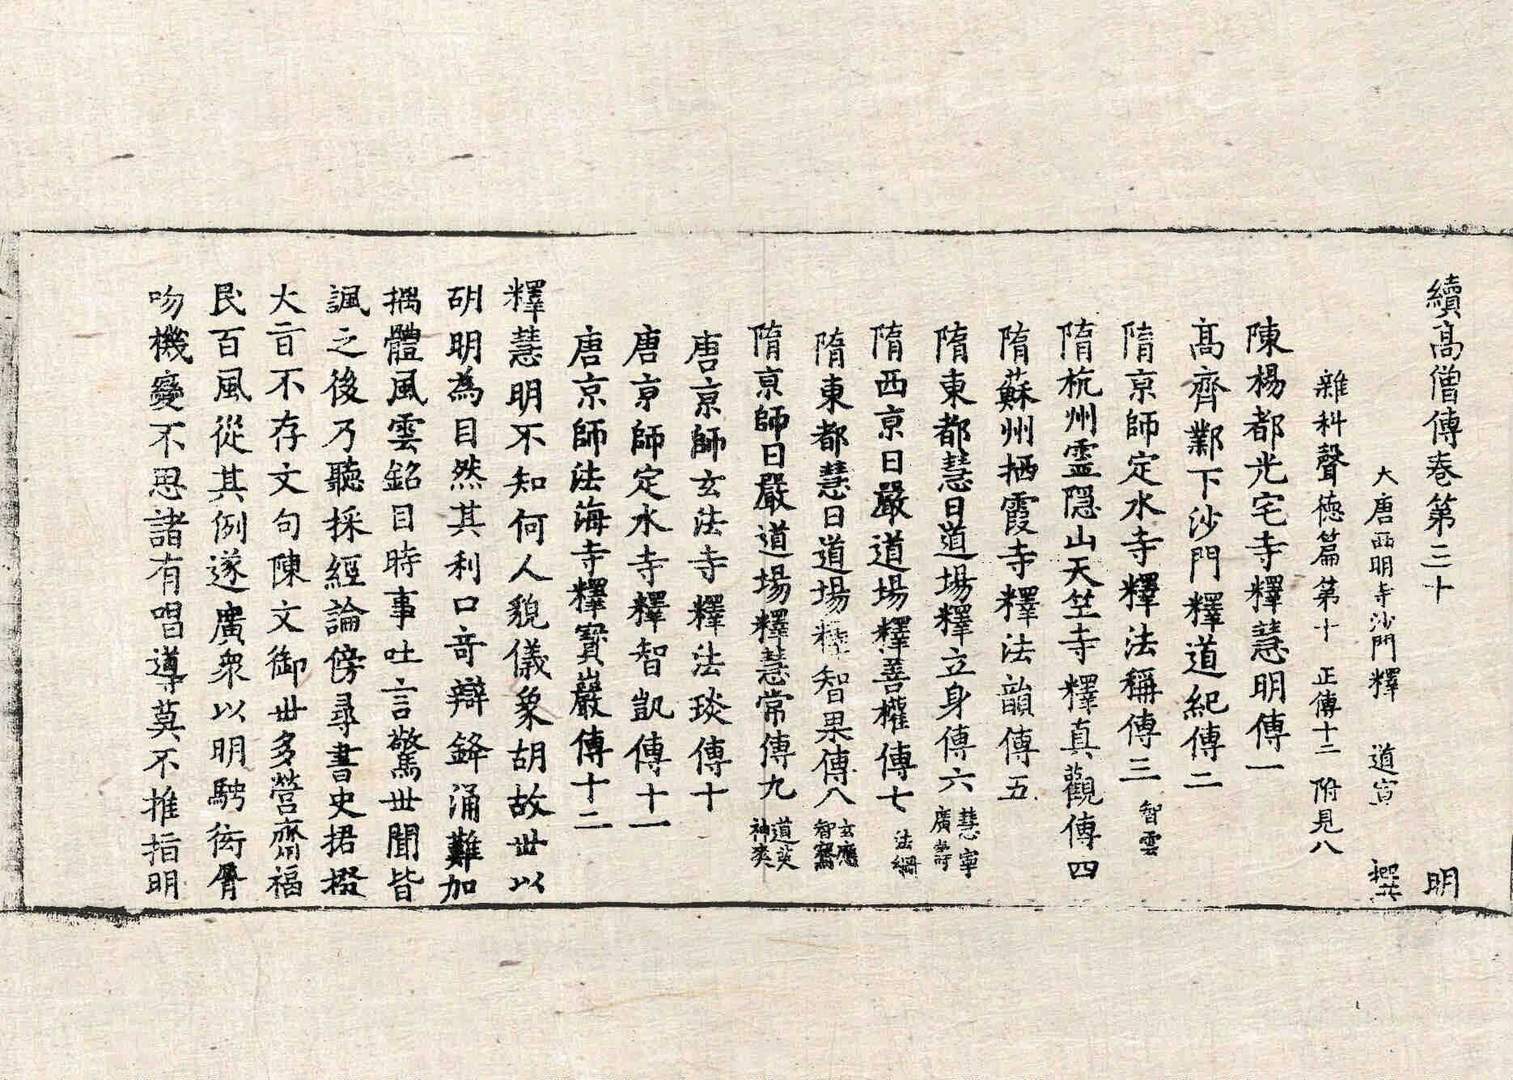 續高僧傳卷第三十 明
大唐西明寺沙門釋 道宣 撰
雜科聲德篇第十 正傳十二 附見八
陳楊都光宅寺釋慧明傳一
高齊鄴下沙門釋道紀傳二
隋京師定水寺釋法稱傳三 智雲
隋杭州靈隱山天竺寺釋真觀傳四
隋蘇州栖霞寺釋法韻傳五
隋東都慧日道場釋立身傳六 慧寧 廣壽
隋西京日嚴道場釋善權傳七 法綱
隋東都慧日道場釋智果傳八 玄應 智騫
隋京師日嚴道場釋慧常傳九 道英 神爽
唐京師玄法寺釋法琰傳十
唐京師定水寺釋智凱傳十一
唐京師法海寺釋寳巖傳十二
釋慧明不知何人貌儀象胡故世以
胡明為目然其利口奇辯鋒涌難加
摛體風雲銘目時事吐言驚世聞皆
諷之後乃聽採經論傍尋書史捃掇
大旨不存文句陳文御世多營齋福
民百風從其例遂廣衆以明騁衒脣
吻機變不思諸有唱導莫不推指明